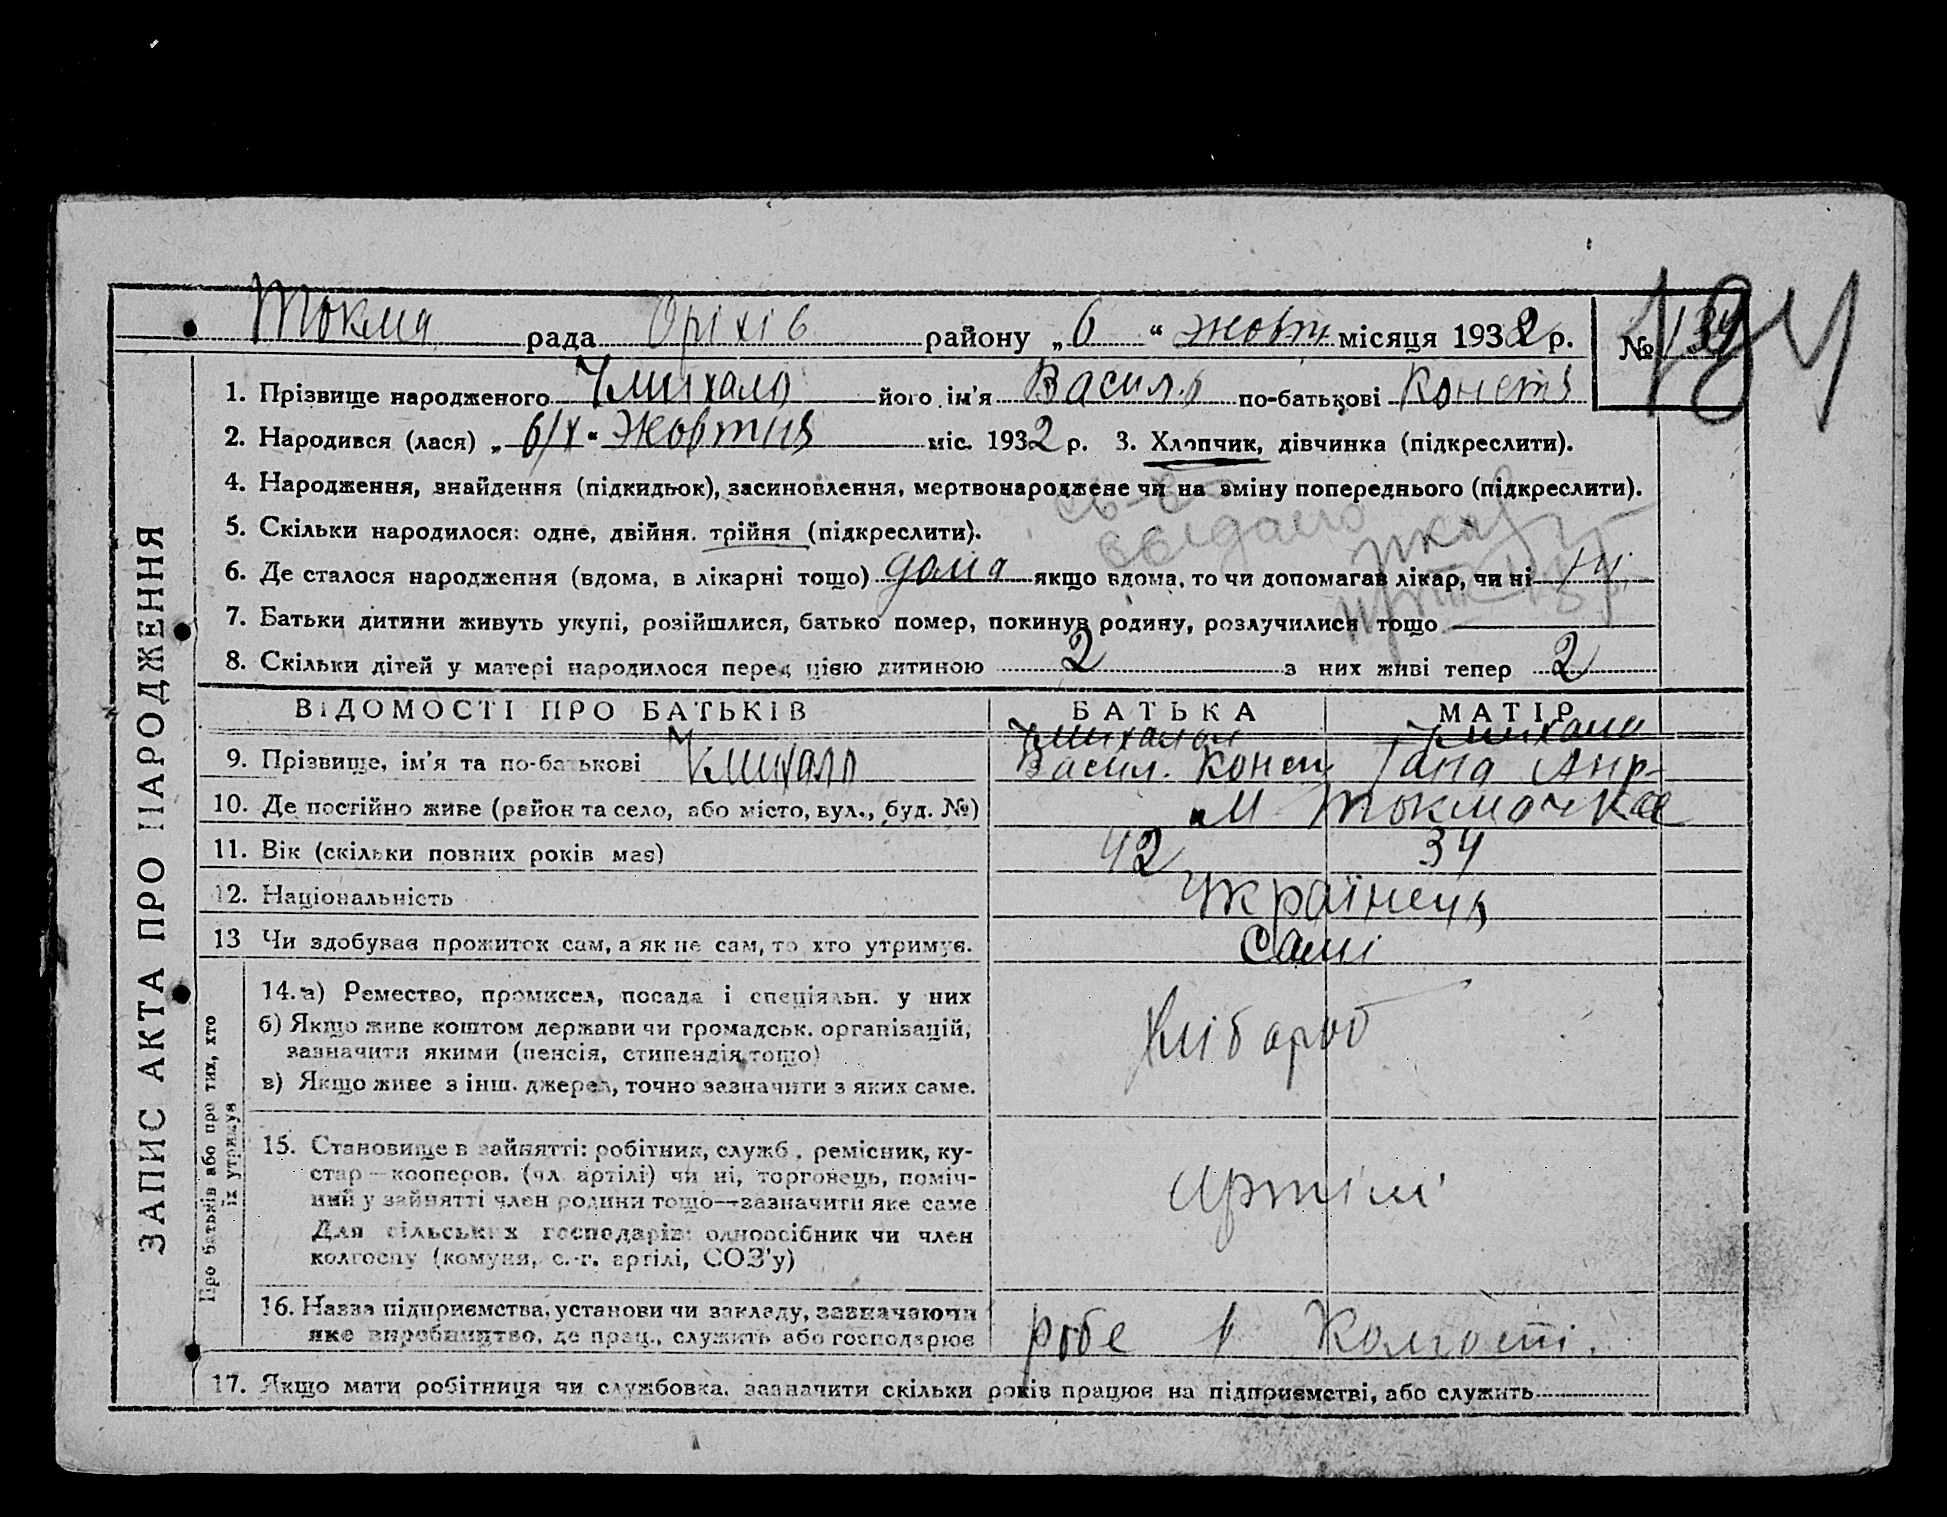 Токма рада Оріхів району „6 “ жовтн місяця 1932 р. № 134
1. Прізвище народженого Чмихало його ім'я Василь по-батькові Констя
2. Народився (лася) „ 6/X “ Жовтня міс. 1932 р. 3. Хлопчик, дівчинка (підкреслити).
4. Народження, знайдення (підкидьок), засиновлення, мертвонароджене чи на зміну попереднього (підкреслити).
5. Скільки народилося: одне, двійня. трійня (підкреслити).
видано
6. Де сталося народження (вдома, в лікарні тощо) дома якщо вдома, то чи допомагав лікар, чи ні
7. Батьки дитини живуть укупі, розійшлися, батько помер, покинув родину, розлучилися тощо
8. Скільки дітей у матері народилося перед цією дитиною 2 з них живі тепер 2
ВІДОМОСТІ ПРО БАТЬКІВ БАТЬКА МАТІР
9. Прізвище, ім'я та по-батькові Чмихало Чмихало Васил. Конст Чмихало Гана Анр-
10. Де постійно живе (район та село, або місто, вул., буд. №) М Токмачка
11. Вік (скільки повних років має) 42 34
12. Національність Українець
13 Чи здобував прожиток сам, а як не сам, то хто утримує. Самі
14. а) Ремество, промисел, посада і спеціяльн. у них Хлібороб
б) Якщо живе коштом держави чи громадськ. організацій,
зазначити якими (пенсія, стипендія тощо)
в) Якщо живе з інш. джерел, точно зазначити з яких саме.
15. Становище в зайнятті: робітник, служб., ремісник, ку-
стар—кооперов. (чл. артілі) чи ні, торговець, поміч-
ний у зайнятті член родини тощо—зазначити яке саме
Для сільських господарів: одноосібник чи член
колгоспу (комуня, с.-г. артілі, СОЗ'у)
Артілі
16. Назва підприємства, установи чи закладу, зазначаючи
яке виробництво, де прац., служить або господарює
робе в Колгоспі.
17. Якщо мати робітниця чи службовка. зазначити скільки років працює на підприємстві, або служить
ЗАПИС АКТА ПРО НАРОДЖЕННЯ
Про батьків або про тих, хто
їх утримує